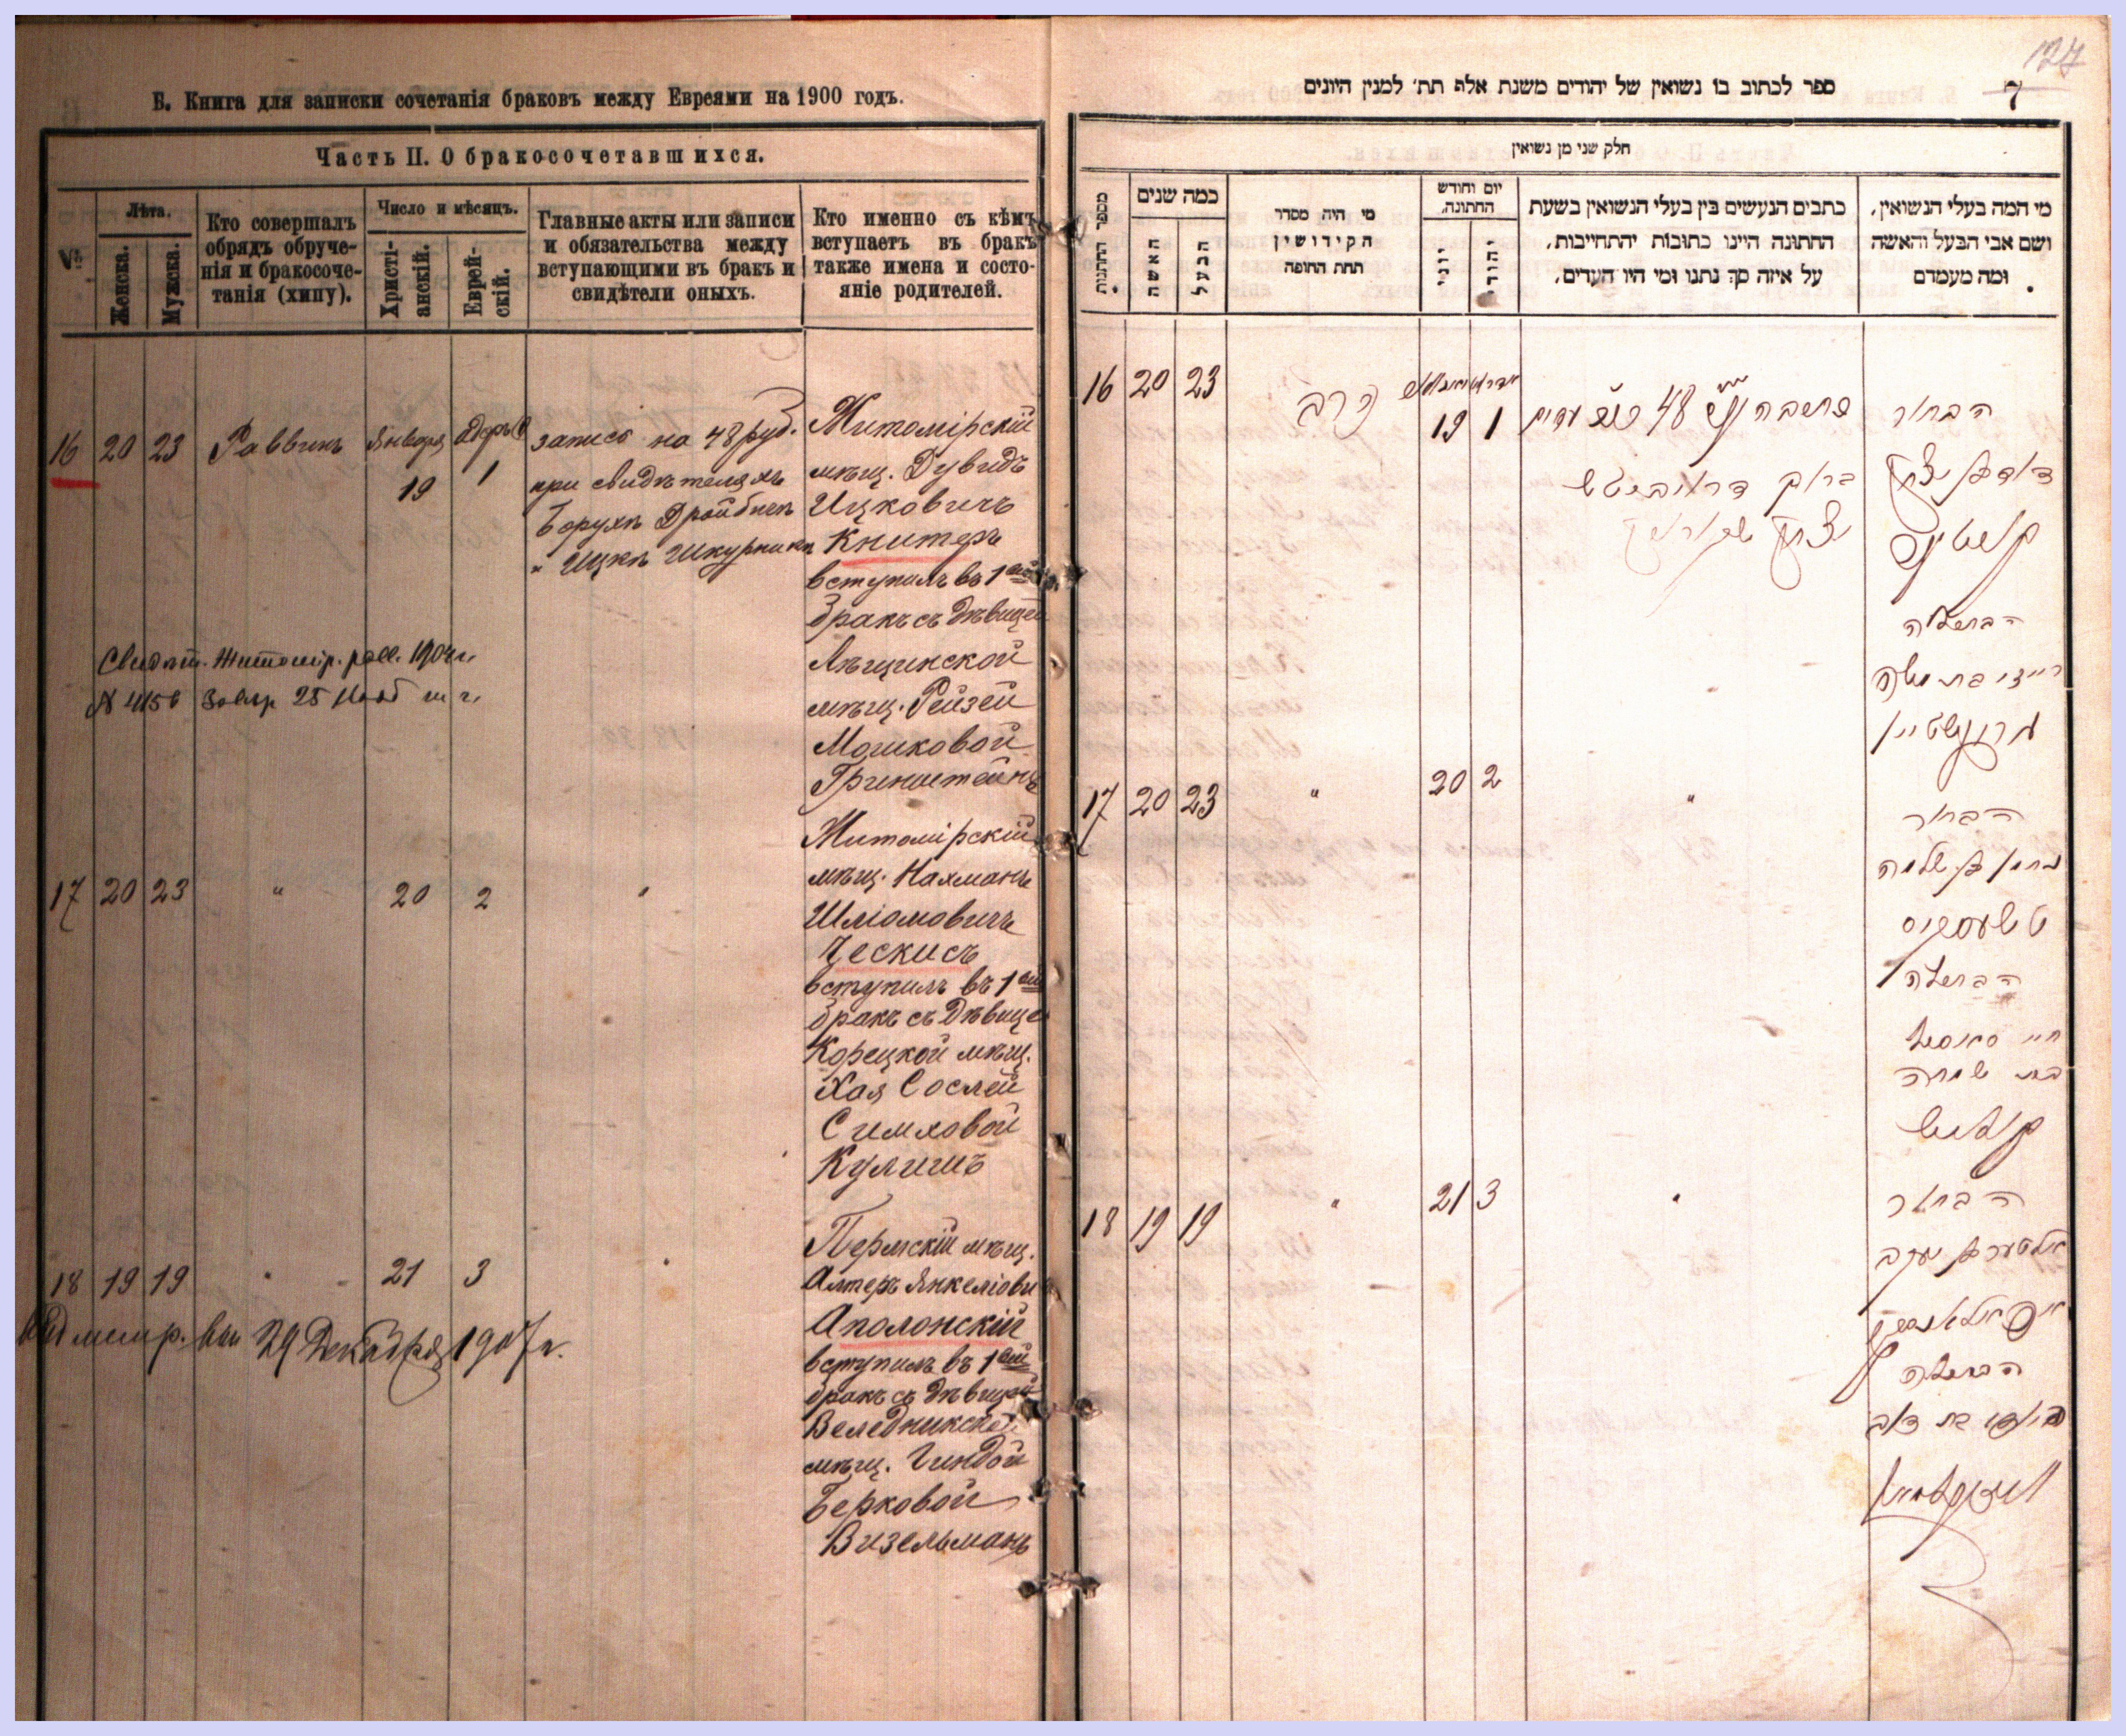 Б. Книга для записки сочетанія браковъ между Евреями на 1900 годъ.
Часть II. О бракосочетавшихся.
№
Лѣта.
Женска.
Мужска.
Кто совершалъ
обрядъ обруче-
нія и бракосоче-
танія (хипу).
Число и мѣсяцъ.
Христі-
анскій.
Еврей-
скій.
Главные акты или записи
и обязательства между
вступающими въ бракъ и
свидѣтели оныхъ.
Кто именно съ кѣмъ
вступаетъ въ бракъ
также имена и состо-
яніе родителей.
16 20 23 Раввинъ Января 19 1
запись на 48 руб.
при свидѣтеляхъ
Борухъ Дройбичъ
Ицкъ Шкурникъ
Житомірскій
мѣщ. Дувидъ
Ицковичъ
Книтеръ
вступилъ въ 1ый
бракъ съ дѣвицей
Лѣщинской
мѣщ. Рейзей
Мошковой
Гринштейнъ
Свидѣт. Житомір. 1904 г.
17 20 23 " 20 2 "
Житомірскій
мѣщ. Нахманъ
Шліомовичъ
Ческисъ
вступилъ въ 1ый
бракъ съ дѣвицей
Корецкой мѣщ.
Хая Сослей
Симховой
Кулишъ
18 19 19 " 21 3 "
Пермскій мѣщ.
Алтеръ Янкеліови
Аполонскій
вступилъ въ 1ый
бракъ съ дѣвицей
Веледникской
мѣщ. Гиндой
Берковой
Визельманъ
29 Декабря 1907 г.
127
7
ספר לכתוב בו נשואין של יהודים משנת אלף תת׳ למנין היונים
חלק שני מן נשואין
מספר החתונות
כמה שנים
האשה
הבעל
מי היה מסדר
הקידושין
תחת החופה
יום וחודש
החתונה.
יוני
יהודי
כתבים הנעשים בין בעלי הנשואין בשעת
החתונה היינו כתובות יהתחייבות,
על איזה סך נתנו ומי היו העדים.
מי המה בעלי הנשואין,
ושם אבי הבעל והאשה
ומה מעמדם
16 20 23 הרב 19 1
הבחור
דוד בן יצחק
הבתולה
רייזי בת משה
גרינשטיין
17 20 23 " 20 2 "
הבחור
נחמן בן שלמה
טשעסקיס
הבתולה
חיי סאסיל
בת שמחה
קוליש
18 19 19 " 21 3 "
הבחור
אלטער בן יעקב
הבתולה
הינדי בת דוב